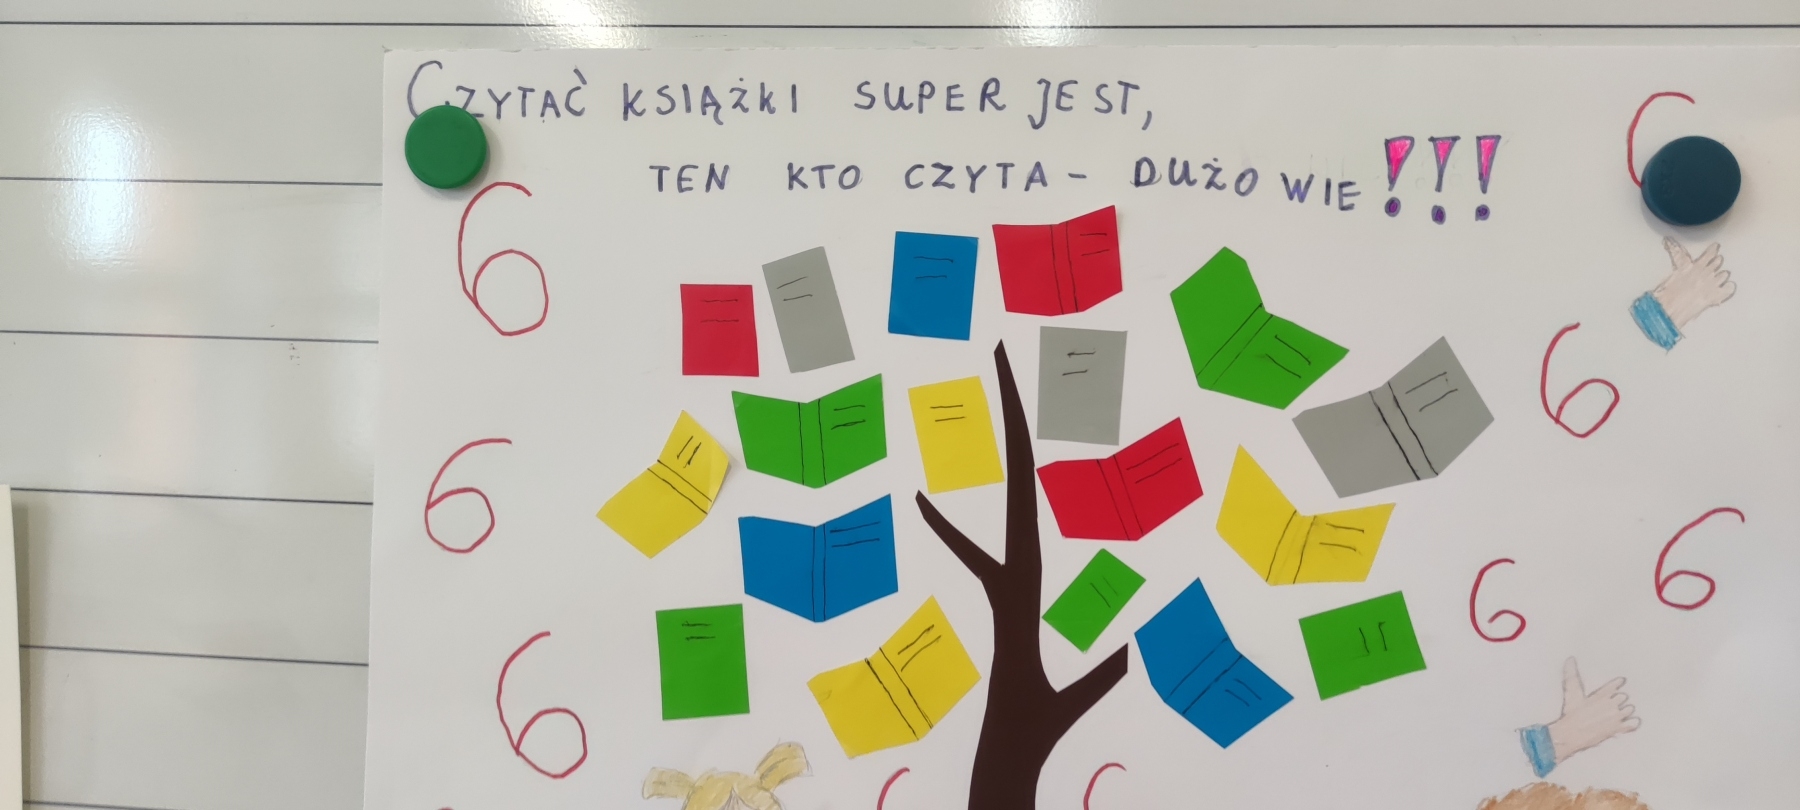 CZYTAĆ KSIĄŻKI SUPER JEST,
TEN KTO CZYTA - DUŻO WIE!!!
6
6
6
6
6
6
6
6